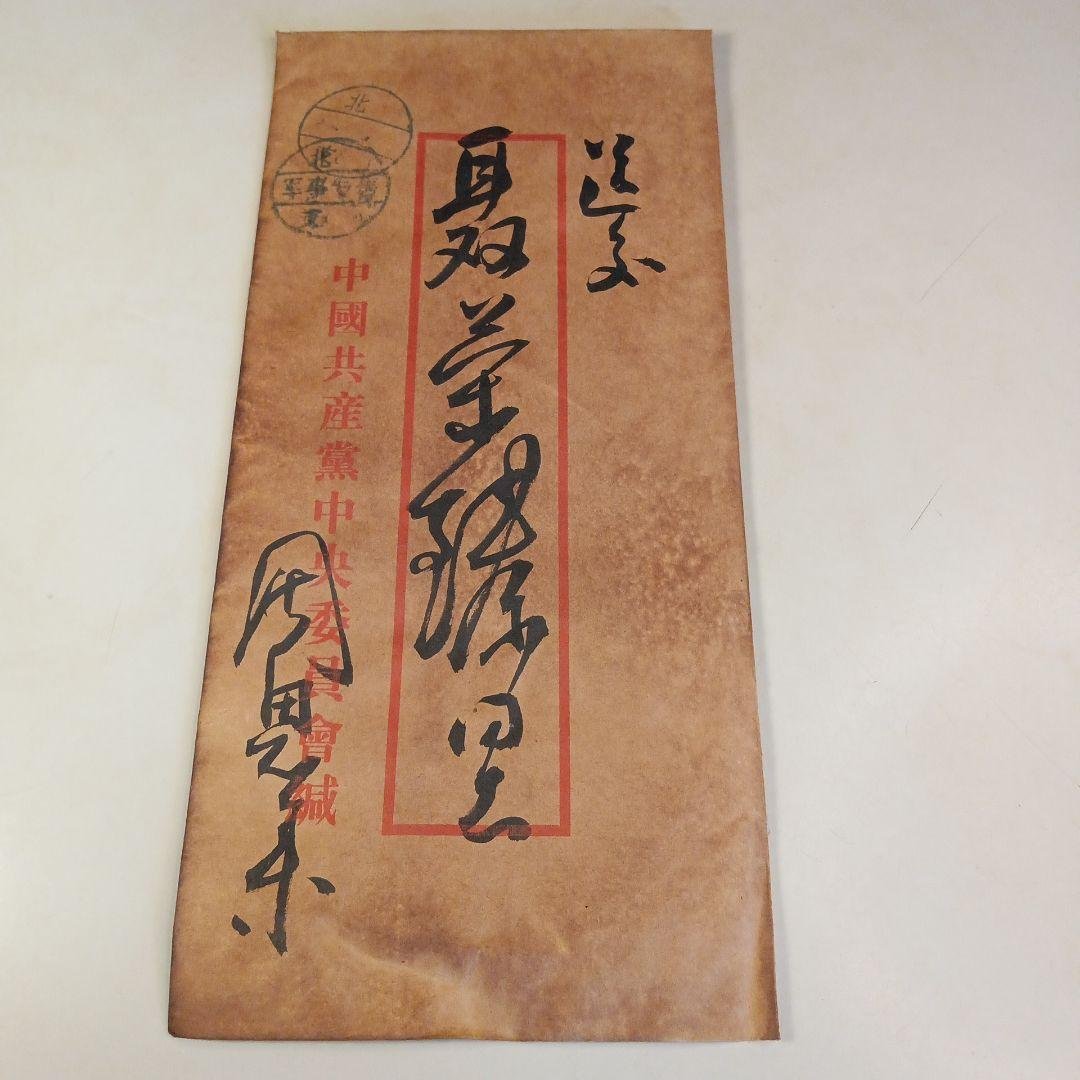 送交
聂荣臻同志
中國共産黨中央委員會緘
周恩来
北
軍事